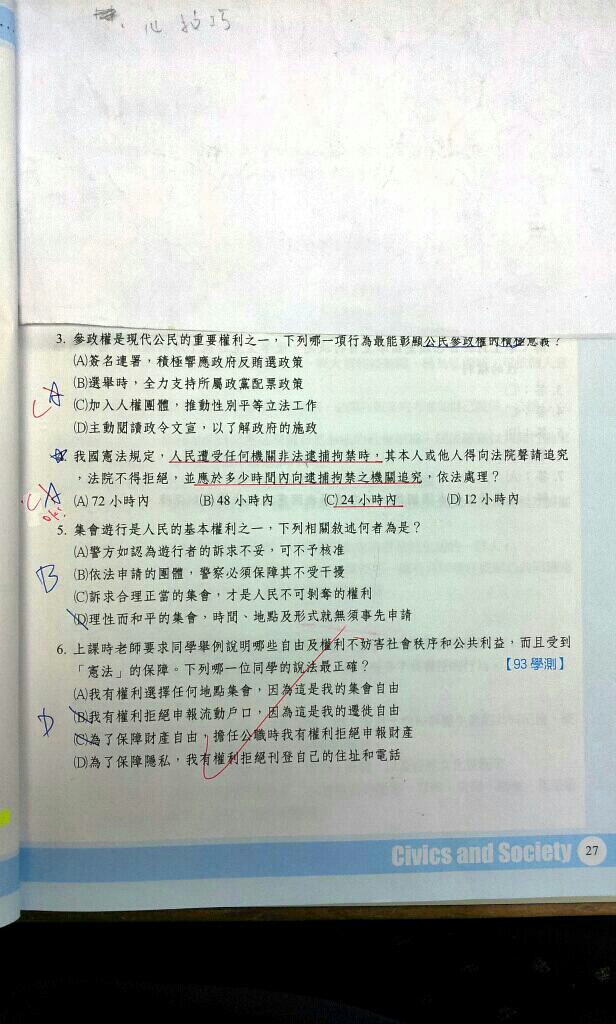 心技巧
3. 參政權是現代公民的重要權利之一，下列哪一項行為最能彰顯公民參政權的積極意義？
(A)簽名連署，積極響應政府反賄選政策
(B)選舉時，全力支持所屬政黨配票政策
(C)加入人權團體，推動性別平等立法工作
(D)主動閱讀政令文宣，以了解政府的施政
C A
我國憲法規定，人民遭受任何機關非法逮捕拘禁時，其本人或他人得向法院聲請追究
，法院不得拒絕，並應於多少時間內向逮捕拘禁之機關追究，依法處理？
(A) 72 小時內 (B) 48 小時內 (C) 24 小時內 (D) 12 小時內
C A
5. 集會遊行是人民的基本權利之一，下列相關敘述何者為是？
(A)警方如認為遊行者的訴求不妥，可不予核准
(B)依法申請的團體，警察必須保障其不受干擾
(C)訴求合理正當的集會，才是人民不可剝奪的權利
(D)理性而和平的集會，時間、地點及形式就無須事先申請
B
6. 上課時老師要求同學舉例說明哪些自由及權利不妨害社會秩序和公共利益，而且受到
「憲法」的保障。下列哪一位同學的說法最正確？ 【93 學測】
(A)我有權利選擇任何地點集會，因為這是我的集會自由
(B)我有權利拒絕申報流動戶口，因為這是我的遷徙自由
(C)為了保障財產自由，擔任公職時我有權利拒絕申報財產
(D)為了保障隱私，我有權利拒絕刊登自己的住址和電話
D
Civics and Society 27